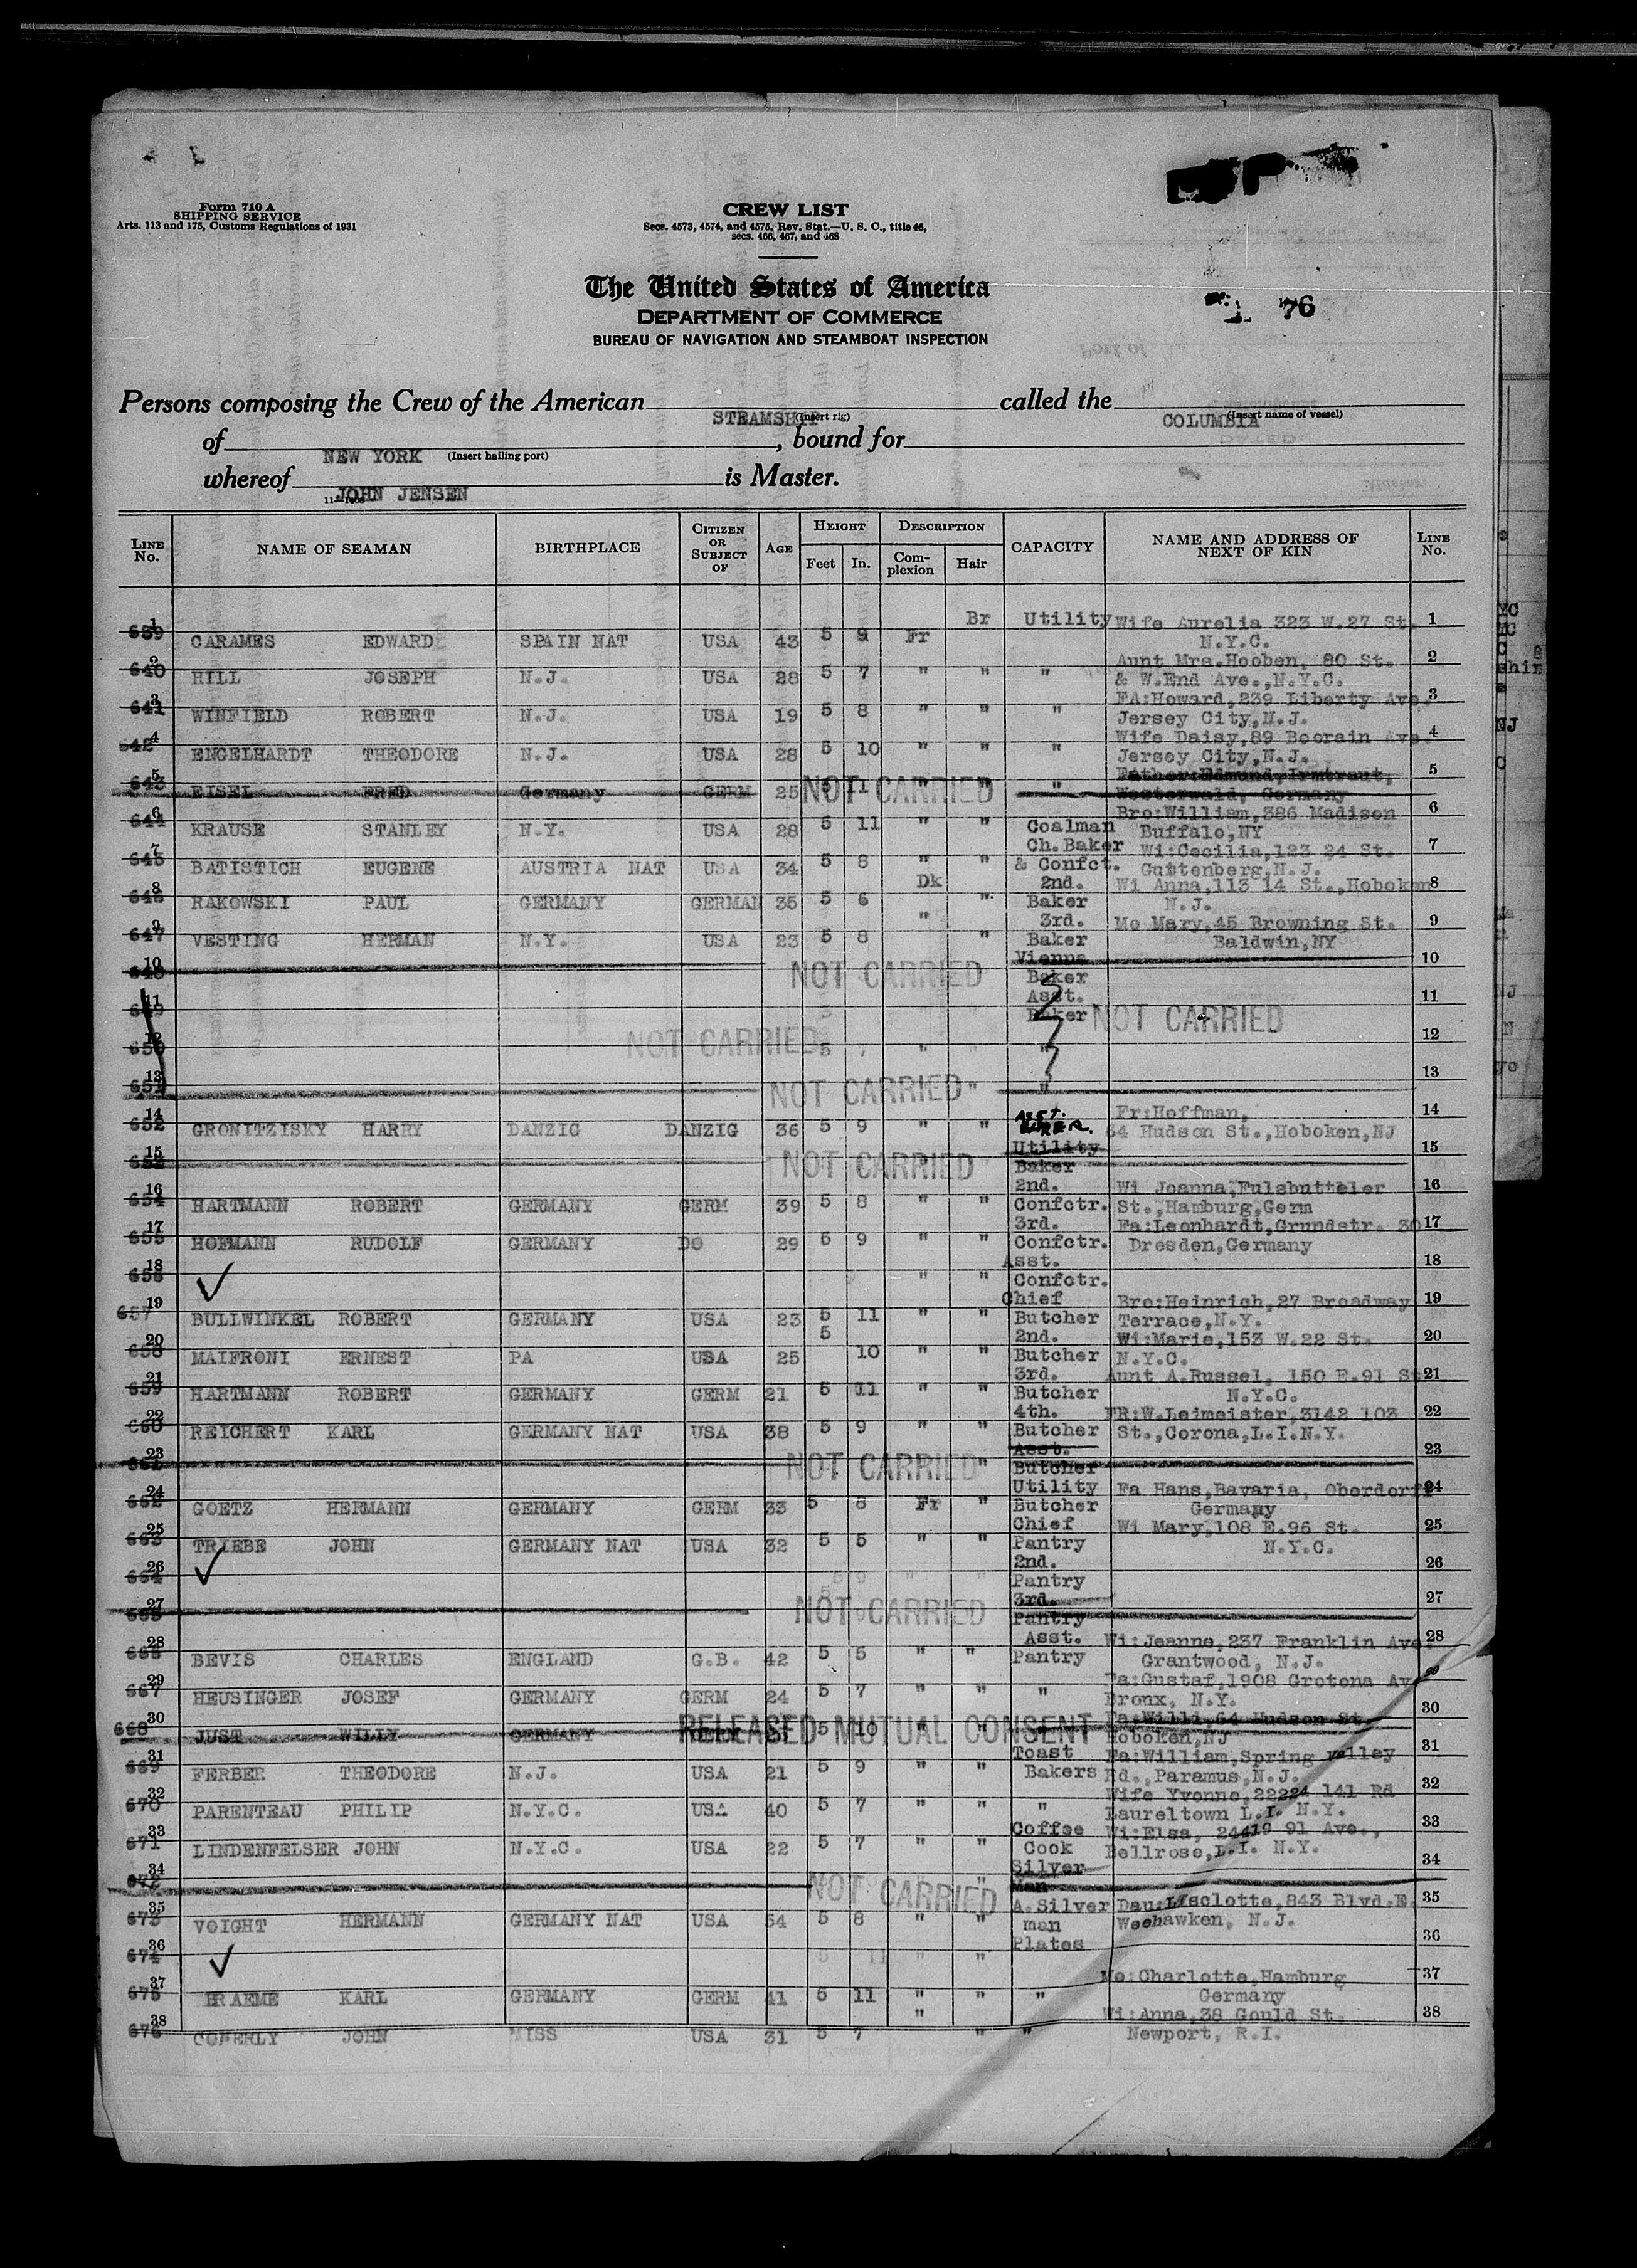 Form 710 A
SHIPPING SERVICE
Arts. 113 and 175, Customs Regulations of 1931
CREW LIST
Secs. 4573, 4574, and 4575, Rev. Stat.—U. S. C., title 46,
secs. 466, 467, and 468
The United States of America
DEPARTMENT OF COMMERCE
BUREAU OF NAVIGATION AND STEAMBOAT INSPECTION
76
Persons composing the Crew of the American STEAMSHIP (Insert rig) called the COLUMBIA (Insert name of vessel)
of NEW YORK (Insert hailing port), bound for
whereof JOHN JENSEN is Master.
LINE No. NAME OF SEAMAN BIRTHPLACE CITIZEN OR SUBJECT OF AGE HEIGHT Feet In. DESCRIPTION Complexion Hair CAPACITY NAME AND ADDRESS OF NEXT OF KIN LINE No.
1 639 CARAMES EDWARD SPAIN NAT USA 43 5 9 Fr Br Utility Wife Aurelia 323 W.27 St. N.Y.C. 1
2 640 HILL JOSEPH N.J. USA 28 5 7 " " " Aunt Mrs.Hooben, 80 St. & W.End Ave.,N.Y.C. 2
3 641 WINFIELD ROBERT N.J. USA 19 5 8 " " " FA:Howard,239 Liberty Ave. Jersey City,N.J. 3
4 642 ENGELHARDT THEODORE N.J. USA 28 5 10 " " " Wife Daisy,89 Boorain Ave. Jersey City,N.J. 4
5 643 EISEL FRED Germany GERM 25 5 11 " " " NOT CARRIED Father:Edmund,Irmtraut, Westerwald, Germany 5
6 644 KRAUSE STANLEY N.Y. USA 28 5 11 " " Coalman Bro:William,386 Madison Buffalo,NY 6
7 645 BATISTICH EUGENE AUSTRIA NAT USA 34 5 8 " " Ch.Baker & Confct. Wi:Cecilia,123 24 St. Guttenberg,N.J. 7
8 646 RAKOWSKI PAUL GERMANY GERMAN 35 5 6 Dk " 2nd. Baker Wi Anna,113 14 St.,Hoboken N.J. 8
9 647 VESTING HERMAN N.Y. USA 23 5 8 " " 3rd. Baker Mo Mary,45 Browning St. Baldwin,NY 9
10 648 NOT CARRIED Vienna Baker 10
11 649 Asst. Baker NOT CARRIED 11
12 650 NOT CARRIED 5 " " 12
13 651 NOT CARRIED " " 13
14 652 GRONITZISKY HARRY DANZIG DANZIG 36 5 9 " " ASST. BAKER. Fr:Hoffman, 64 Hudson St.,Hoboken,NJ 14
15 653 NOT CARRIED Utility Baker 15
16 654 HARTMANN ROBERT GERMANY GERM 39 5 8 " " 2nd. Confctr. Wi Joanna,Fulsbutteler St.,Hamburg,Germ 16
17 655 HOFMANN RUDOLF GERMANY DO 29 5 9 " " 3rd. Confctr. Fa:Leonhardt,Grundstr. 30 Dresden,Germany 17
18 656 " " Asst. Confctr. 18
19 657 BULLWINKEL ROBERT GERMANY USA 23 5 11 " " Chief Butcher Bro:Heinrich,27 Broadway Terrace,N.Y. 19
20 658 MAIFRONI ERNEST PA USA 25 5 10 " " 2nd. Butcher Wi:Marie,153 W.22 St. N.Y.C. 20
21 659 HARTMANN ROBERT GERMANY GERM 21 5 11 " " 3rd. Butcher Aunt A.Russel, 150 E.91 St N.Y.C. 21
22 660 REICHERT KARL GERMANY NAT USA 38 5 9 " " 4th. Butcher FR:W.Leimeister,3142 103 St.,Corona,L.I.N.Y. 22
23 661 NOT CARRIED " Asst. Butcher 23
24 662 GOETZ HERMANN GERMANY GERM 33 5 8 Fr " Utility Butcher Fa Hans,Bavaria, Oberdorff Germany 24
25 663 TRIEBE JOHN GERMANY NAT USA 32 5 5 " " Chief Pantry Wi Mary,108 E.96 St. N.Y.C. 25
26 664 5 9 " " 2nd. Pantry 26
27 665 NOT CARRIED 3rd. Pantry 27
28 666 BEVIS CHARLES ENGLAND G.B. 42 5 5 " " Asst. Pantry Wi:Jeanne,237 Franklin Ave. Grantwood, N.J. 28
29 667 HEUSINGER JOSEF GERMANY GERM 24 5 7 " " " Fa:Gustaf,1908 Crotona Av Bronx, N.Y. 29
30 668 JUST WILLY GERMANY 5 10 " RELEASED MUTUAL CONSENT Fa:Willi,64 Hudson St Hoboken,NJ 30
31 669 FERBER THEODORE N.J. USA 21 5 9 " " Toast Bakers Fa:William,Spring Valley Rd.,Paramus,N.J. 31
32 670 PARENTEAU PHILIP N.Y.C. USA 40 5 7 " " " Wife Yvonne,22224 141 Rd Laureltown L.I. N.Y. 32
33 671 LINDENFELSER JOHN N.Y.C. USA 22 5 7 " " Coffee Cook Wi:Elsa, 24419 91 Ave., Bellrose,L.I. N.Y. 33
34 672 NOT CARRIED " Silver Man 34
35 673 VOIGHT HERMANN GERMANY NAT USA 54 5 8 " " A.Silver man Dau:Liselotte,843 Blvd.E. Weehawken, N.J. 35
36 674 5 11 " " Plates 36
37 675 BRAEME KARL GERMANY GERM 41 5 11 " " " Mo:Charlotte,Hamburg Germany 37
38 676 CONERLY JOHN MISS USA 31 5 7 " " " Wi:Anna,38 Gould St. Newport, R.I. 38